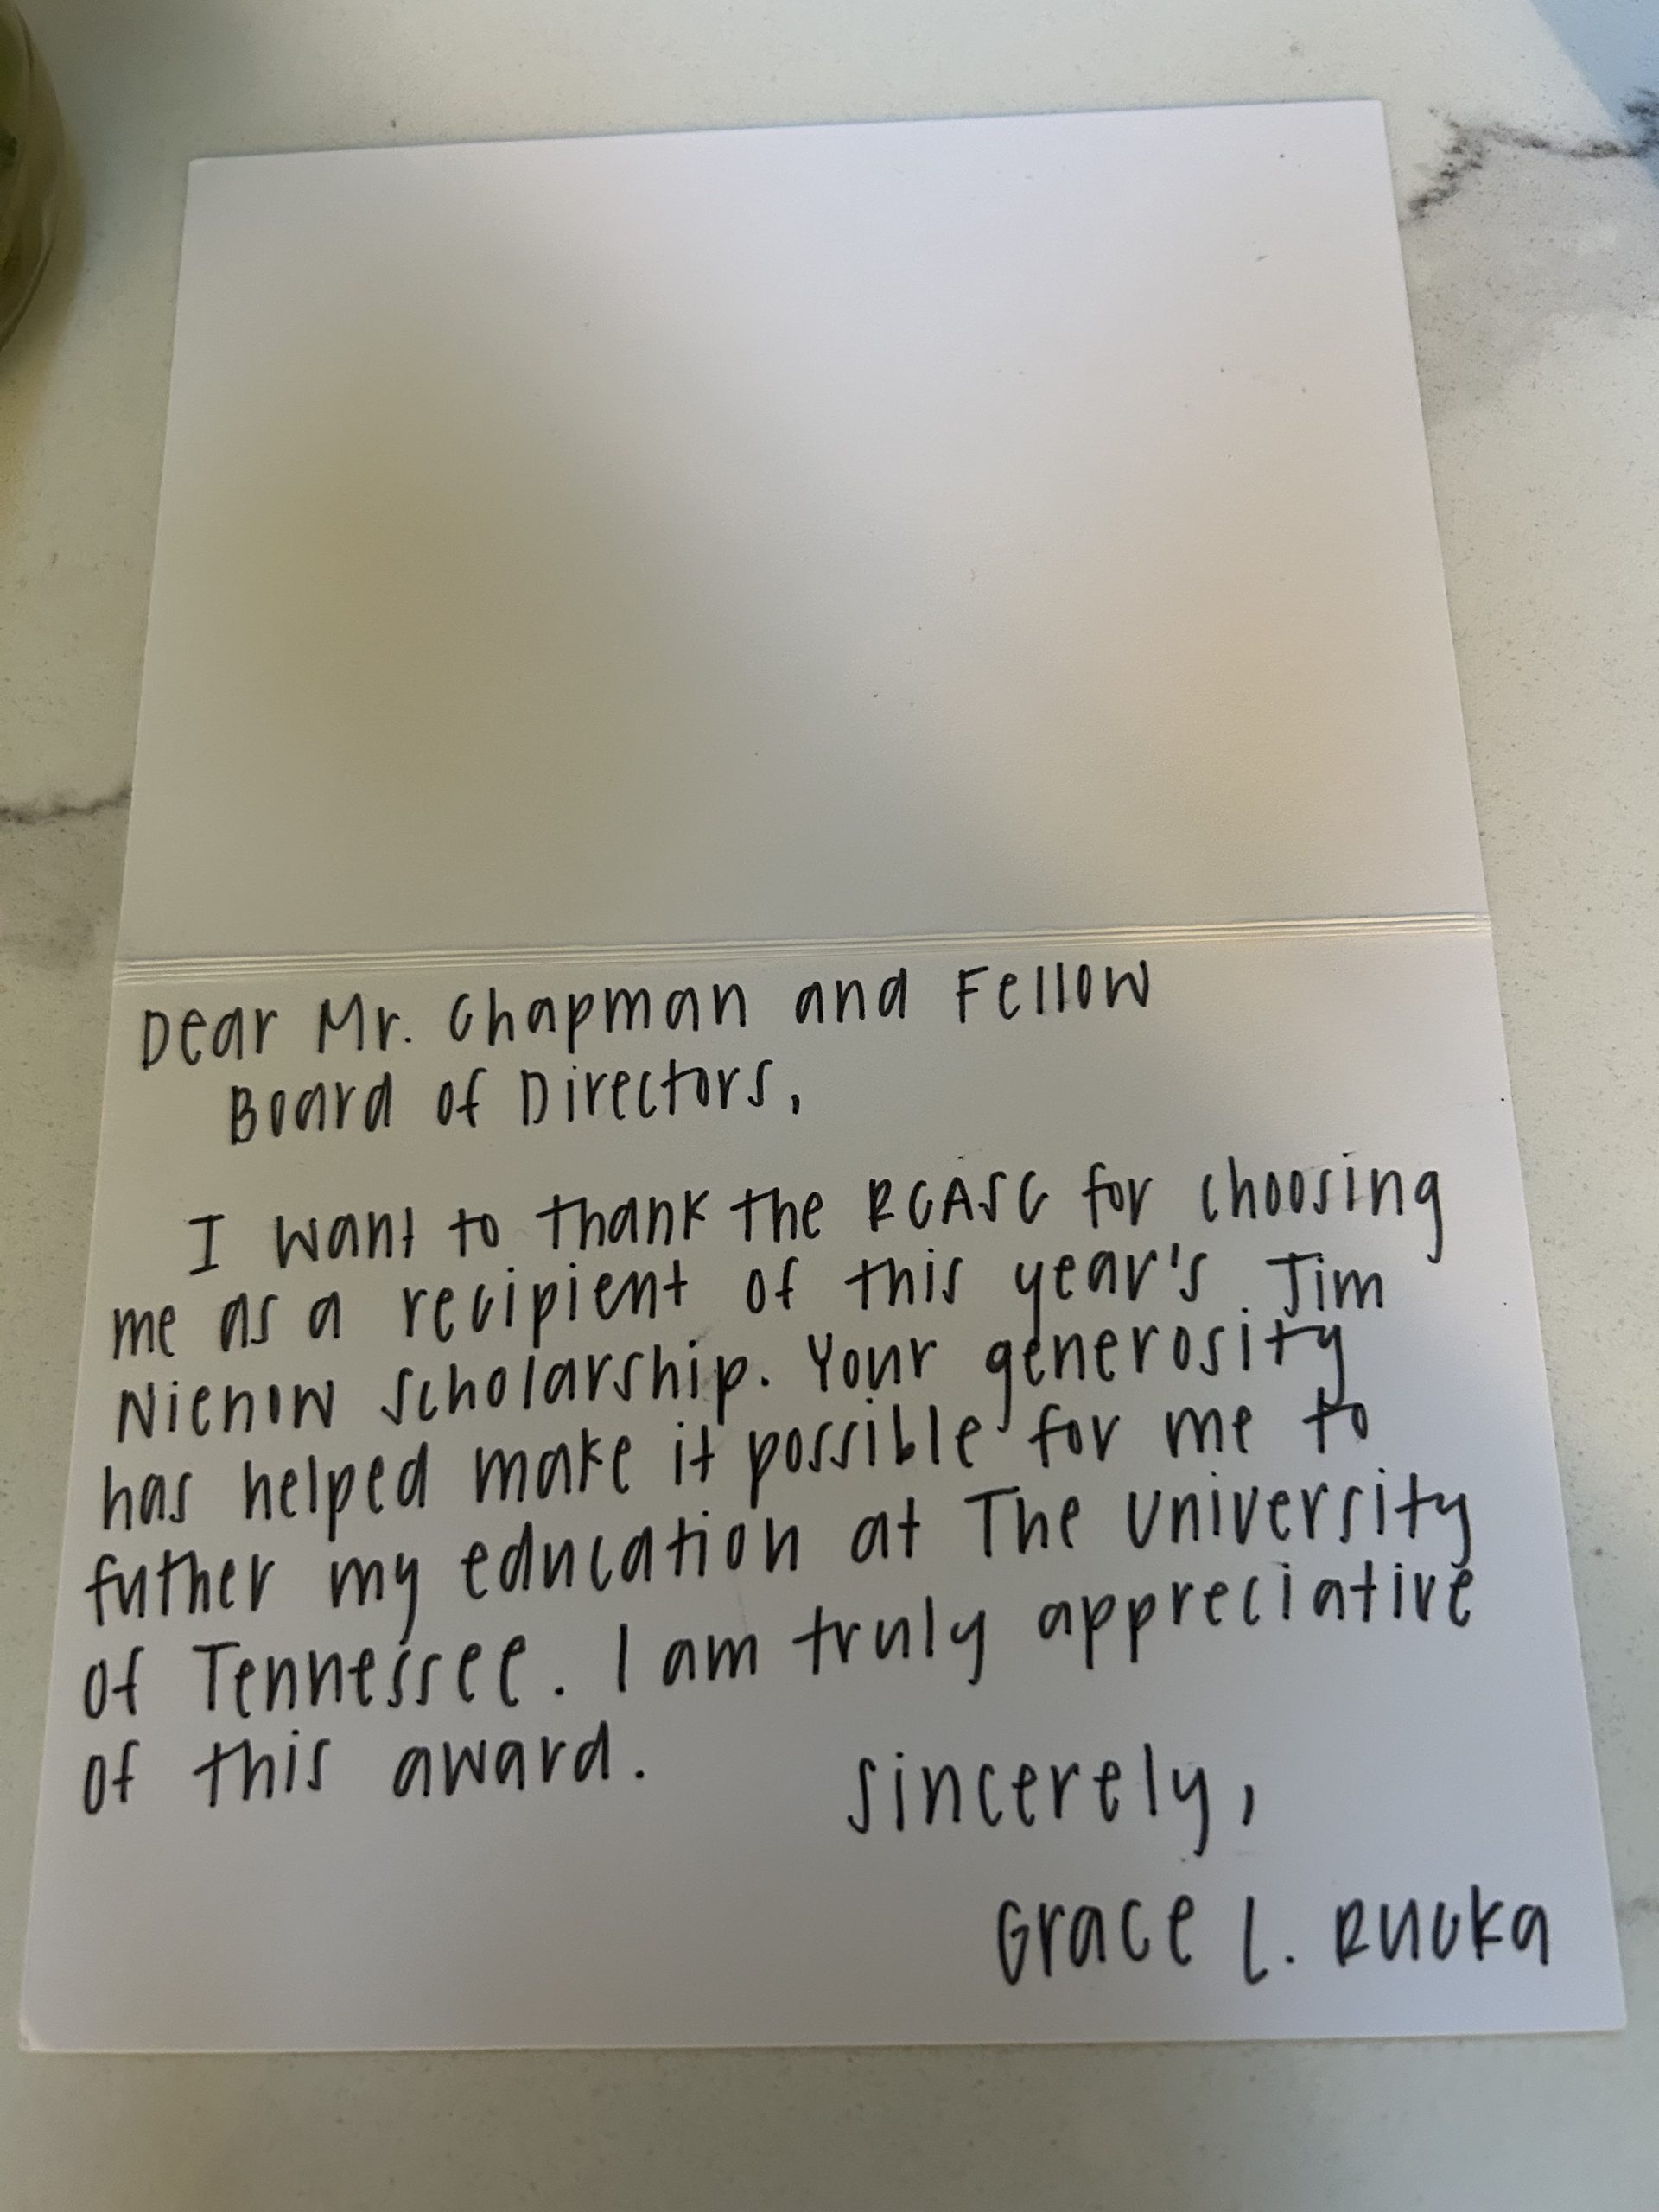 Dear Mr. Chapman and Fellow
Board of Directors,
I want to thank the RCASC for choosing
me as a recipient of this year's Jim
Nienow Scholarship. Your generosity
has helped make it possible for me to
futher my education at The University
of Tennessee. I am truly appreciative
of this award.
Sincerely,
Grace L. Rucka